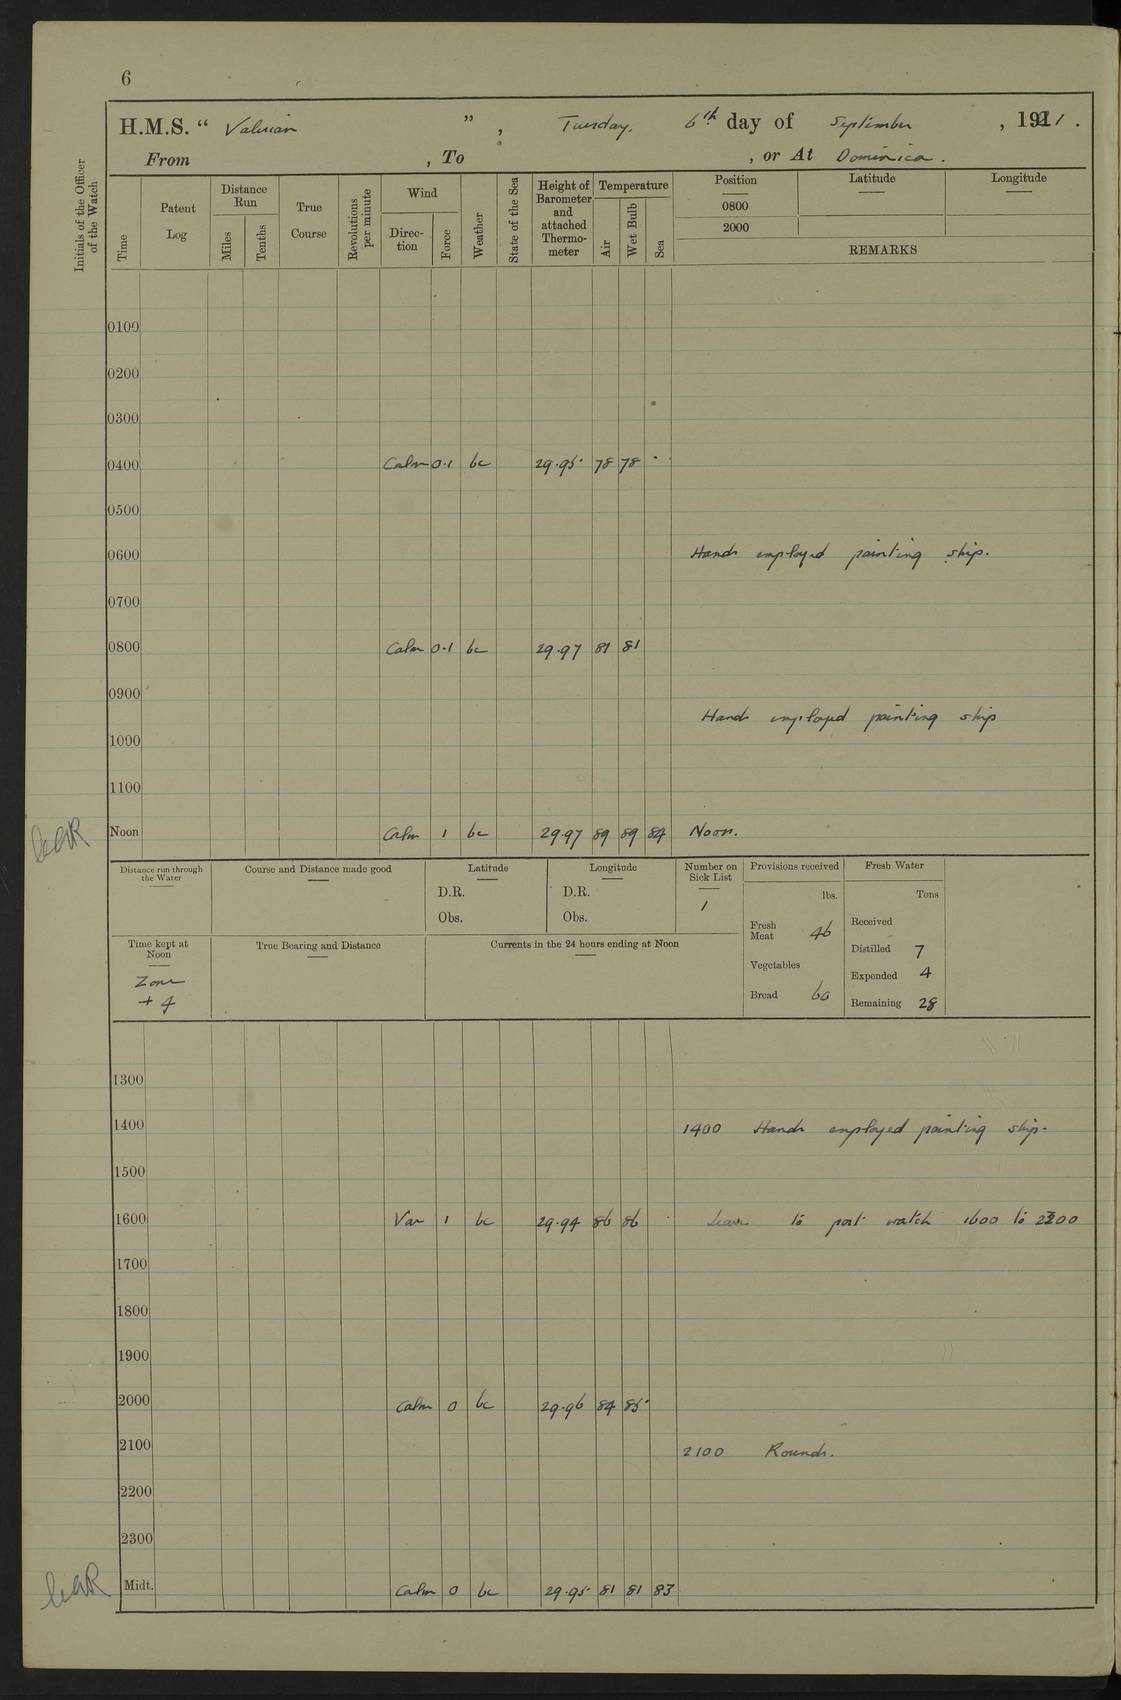 6
H.M.S. “ Valerian ” , Tuesday, 6th day of September , 1921 .
From , To , or At Dominica .
Initials of the Officer of the Watch
Time Patent Log Distance Run Miles Tenths True Course Revolutions per minute Wind Direction Force Weather State of the Sea Height of Barometer and attached Thermometer Temperature Air Wet Bulb Sea Position Latitude Longitude
0800
2000
REMARKS
0100
0200
0300
0400 Calm 0.1 bc 29.95 78 78
0500
0600 Hands employed painting ship.
0700
0800 Calm 0.1 bc 29.97 81 81
0900
Hands employed painting ship
1000
1100
Noon Calm 1 bc 29.97 89 89 84 Noon.
Distance run through the Water Course and Distance made good Latitude Longitude Number on Sick List Provisions received Fresh Water
D.R. D.R. 1 lbs. Tons
Obs. Obs. Fresh Meat 46 Received
Time kept at Noon True Bearing and Distance Currents in the 24 hours ending at Noon Distilled 7
Zone Vegetables Expended 4
+ 4 Bread 60 Remaining 28
1300
1400 1400 Hands employed painting ship.
1500
1600 Var 1 bc 29.94 86 86 Leave to port watch 1600 to 2200
1700
1800
1900
2000 Calm 0 bc 29.96 84 85
2100 2100 Rounds.
2200
2300
Midt. Calm 0 bc 29.95 81 81 83